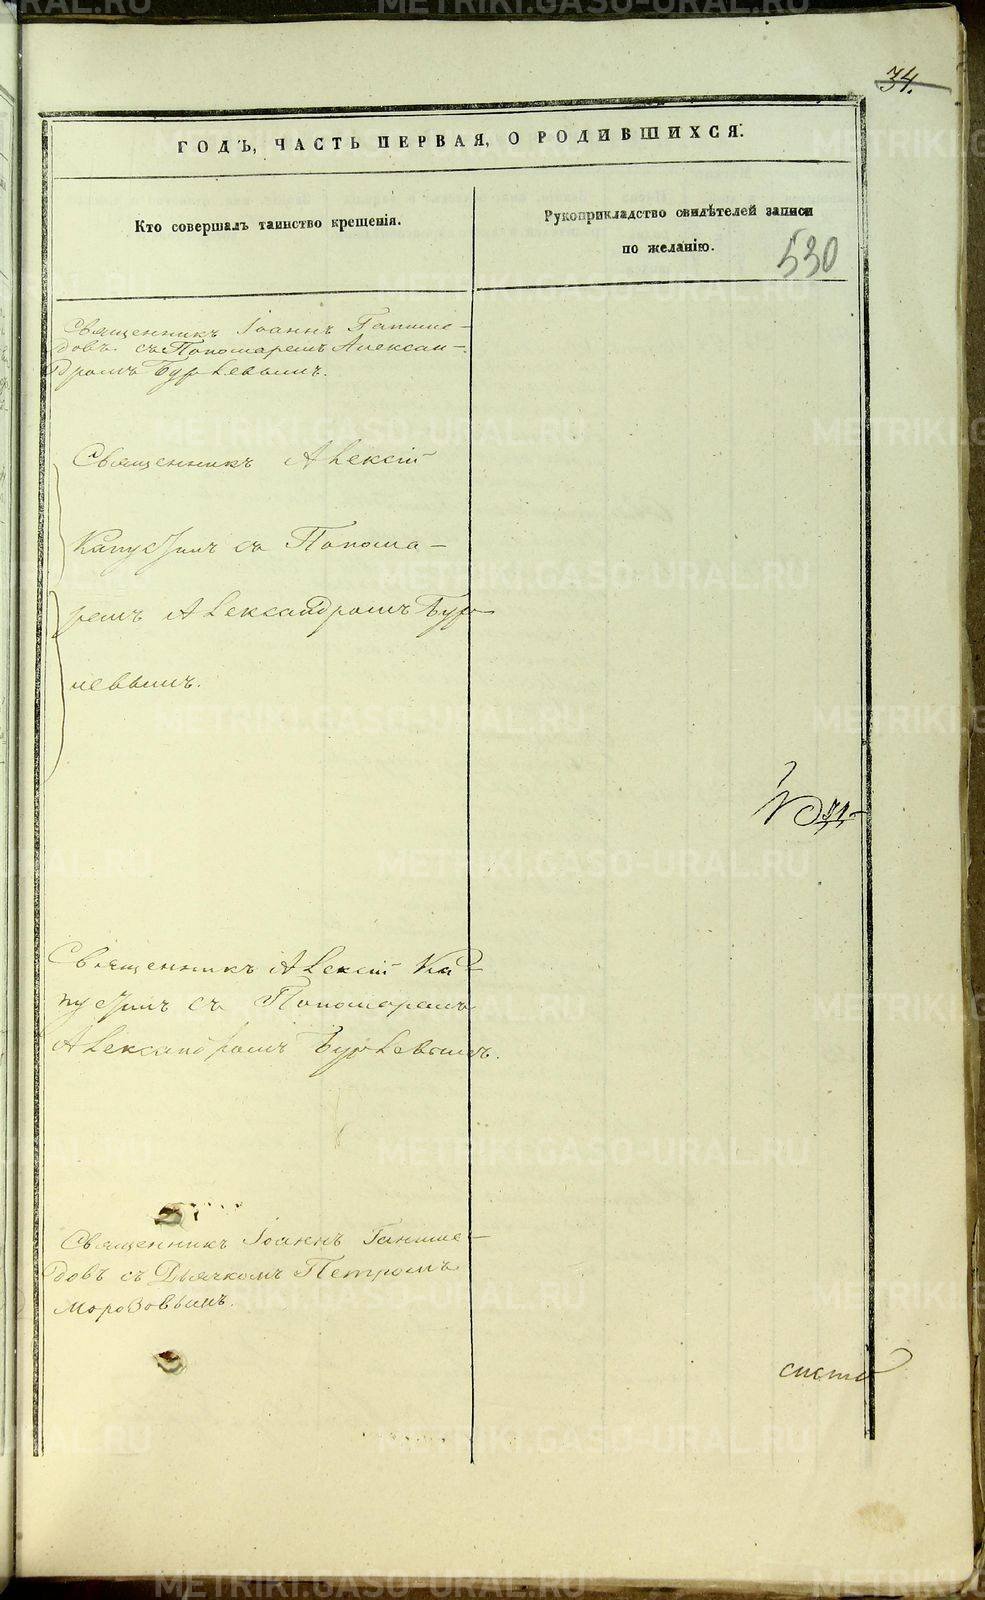 34.
ГОДЪ, ЧАСТЬ ПЕРВАЯ, О РОДИВШИХСЯ.
Кто совершалъ таинство крещенія.
Рукоприкладство свидѣтелей записи
по желанію.
530
Священникъ Іоаннъ
довъ съ Пономаремъ Алексан-
дромъ Бурлевымъ.
Священникъ Алексій
Капустинъ съ Понома-
ремъ Александромъ Бур-
левымъ.
Священникъ Алексій Ка-
пустинъ съ Пономаремъ
Александромъ Бурлевымъ.
Священникъ Іоаннъ
довъ съ Дьячкомъ Петромъ
Морозовымъ.
METRIKI.GASO-URAL.RU